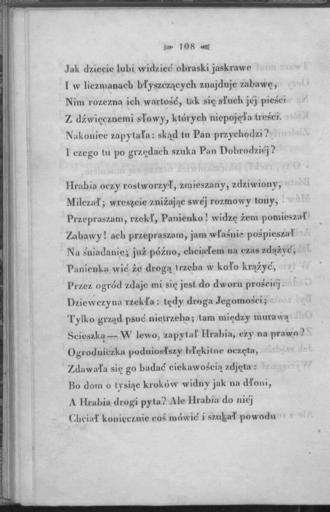 108
Jak dziecie lubi widzieć obraski jaskrawe
I w liczmanach błyszczących znajduje zabawę,
Nim rozezna ich wartość, tak się słuch jéj pieści
Z dźwięcznemi słowy, których niepojęła treści.
Nakoniec zapytała: skąd tu Pan przychodzi?
I czego tu po grzędach szuka Pan Dobrodziéj?
Hrabia oczy rostworzył, zmieszany, zdziwiony,
Milczał; wreszcie zniżając swéj rozmowy tony,
Przepraszam, rzekł, Panienko! widzę żem pomieszał
Zabawy! ach przepraszam, jam właśnie pośpieszał
Na śniadanie; już późno, chciałem na czas zdążyć,
Panienka wié że drogą trzeba w koło krążyć,
Przez ogród zdaje mi się jest do dworu prościéj.
Dziewczyna rzekła: tędy droga Jegomości;
Tylko grząd psuć nietrzeba; tam między murawą
Scieszką — W lewo, zapytał Hrabia, czy na prawo?
Ogrodniczka podniosłszy błękitne oczęta,
Zdawała się go badać ciekawością zdjęta:
Bo dom o tysiąc kroków widny jak na dłoni,
A Hrabia drogi pyta? Ale Hrabia do niéj
Chciał koniecznie coś mówić i szukał powodu